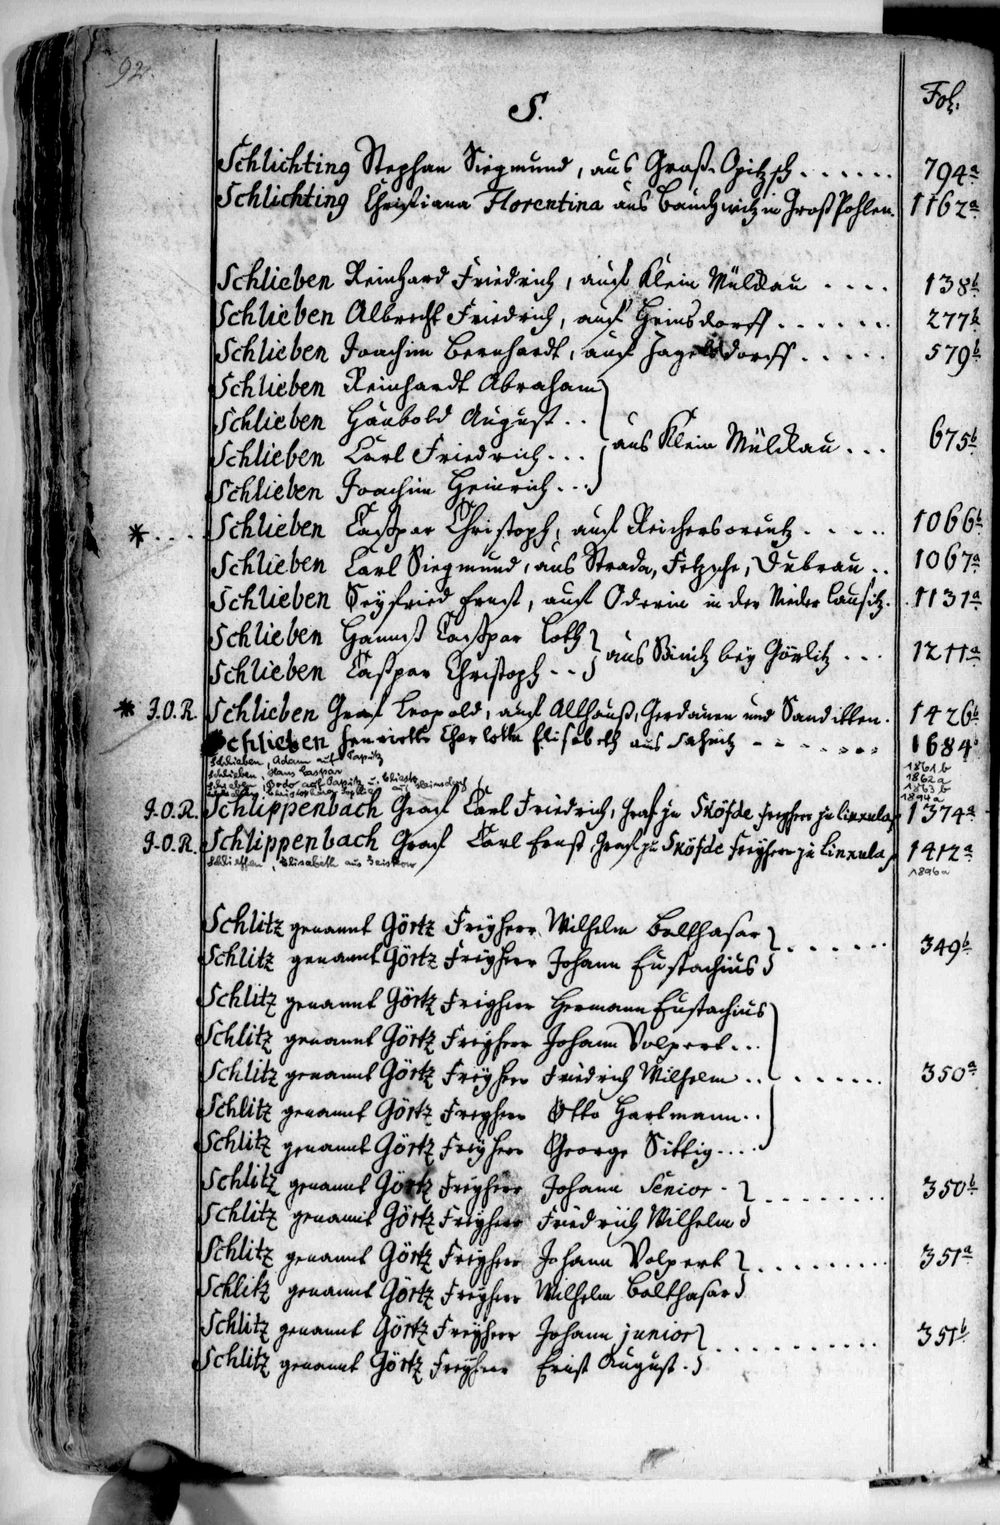 92.
S.
Fol:
Schlichting Stephan Siegmund, aus Groß-Opitzsch...... 794a
Schlichting Christiana Florentina aus Bauchwitz in Groß Pohlen. 1162a
Schlieben Reinhard Friedrich, auf Klein Mülckau .... 138b
Schlieben Albrecht Friedrich, auf Heinsdorff ...... 277b
Schlieben Joachim Bernhardt, auf Jagelsdorff ..... 579b
Schlieben Reinhardt Abraham
Schlieben Haubold August ..
Schlieben Carl Friedrich ... aus Klein Mülckau ... 675b
Schlieben Joachim Heinrich ...
* .... Schlieben Casspar Christoph, auf Reichersoreutz ..... 1066b
Schlieben Carl Siegmund, aus Strada, Fetzsche, Dubrau .. 1067a
Schlieben Seyfried Ernst, auf Oderin in der Nieder Lausitz. 1131a
Schlieben Hannß Casspar Loth
Schlieben Casspar Christoph -- aus Sänitz bey Görlitz ... 1211a
* J.O.R. Schlieben Graf Leopold, auf Allhauß, Gerdauen und Sanditten. 1426b
Schlieben Henriette Charlotta Elisabeth aus 1684
Schlieben, Adam auf Papitz 1861b
Schlieben, Hans Caspar 1862a
Schlieben, Bodo auf Papitz u. 1863b
1894a
J.O.R. Schlippenbach Graf Carl Friedrich, Graf zu Sköfde Freyherr zu Linxula 1374a
J.O.R. Schlippenbach Graf Carl Ernst Graf zu Sköfde Freyherr zu Linxula 1412a
Schlieffen, Elisabeth aus 1896a
Schlitz genannt Görtz Freyherr Wilhelm Balthasar
Schlitz genannt Görtz Freyherr Johann Eustachius ...... 349b
Schlitz genannt Görtz Freyherr Hermann Eustachius
Schlitz genannt Görtz Freyherr Johann Volpert ...
Schlitz genannt Görtz Freyherr Friedrich Wilhelm ........ 350a
Schlitz genannt Görtz Freyherr Otto Hartmann ..
Schlitz genannt Görtz Freyherr George Sittig ....
Schlitz genannt Görtz Freyherr Johann Senior - ......... 350b
Schlitz genannt Görtz Freyherr Friedrich Wilhelm
Schlitz genannt Görtz Freyherr Johann Volpert ......... 351a
Schlitz genannt Görtz Freyherr Wilhelm Balthasar
Schlitz genannt Görtz Freyherr Johann junior ........... 351b
Schlitz genannt Görtz Freyherr Ernst August.